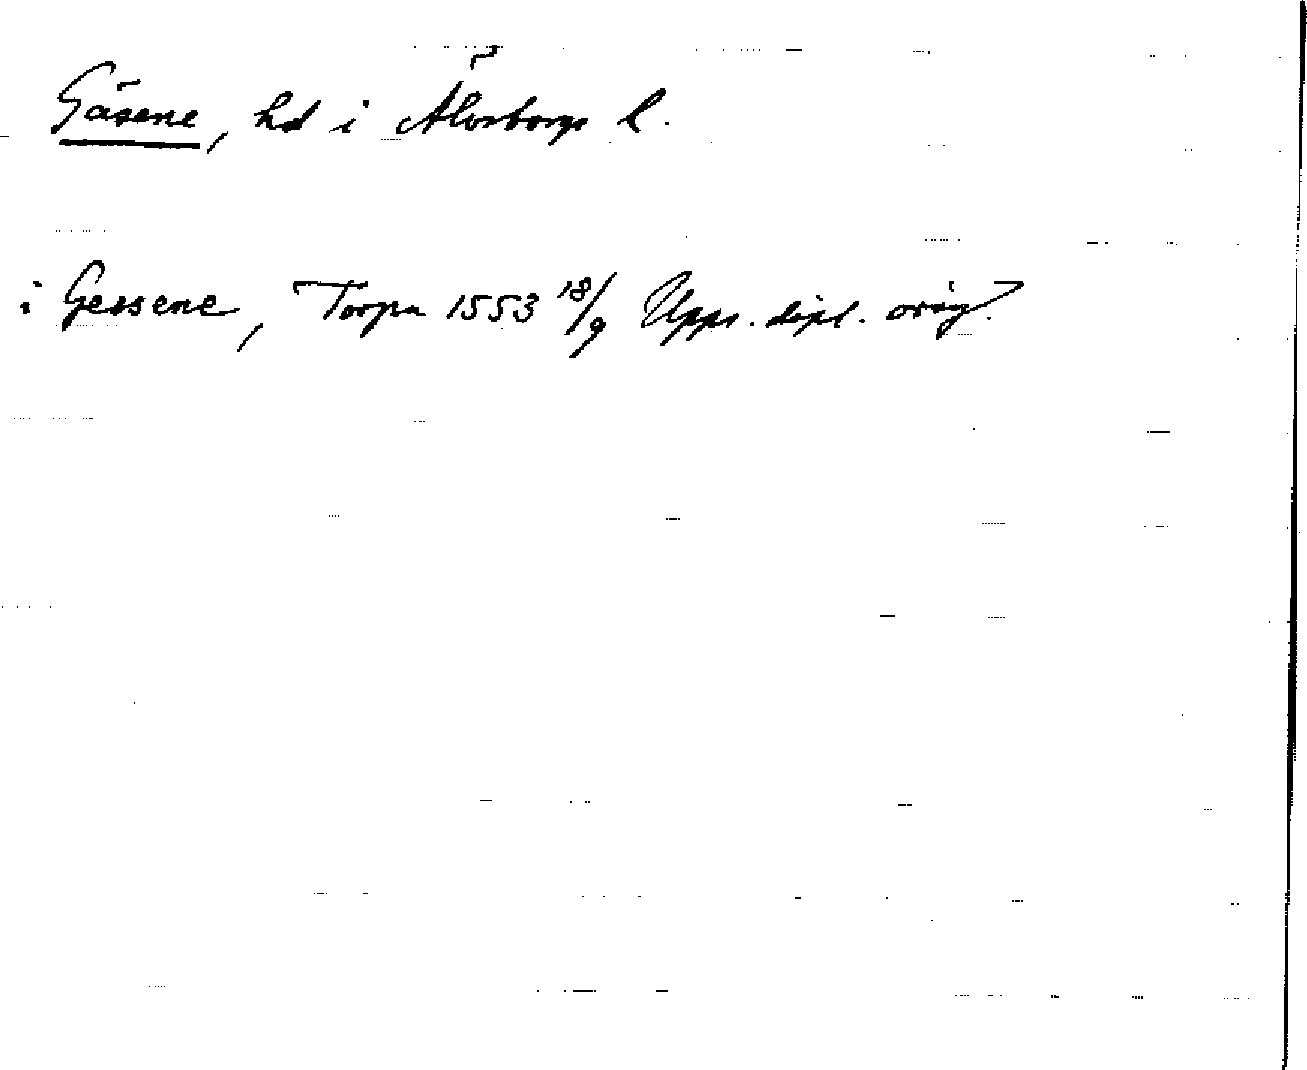 Gäsene, hd i Älvsborgs l.
i Gessene, Torpa 1553 18/9 Upps. dipl. orig.